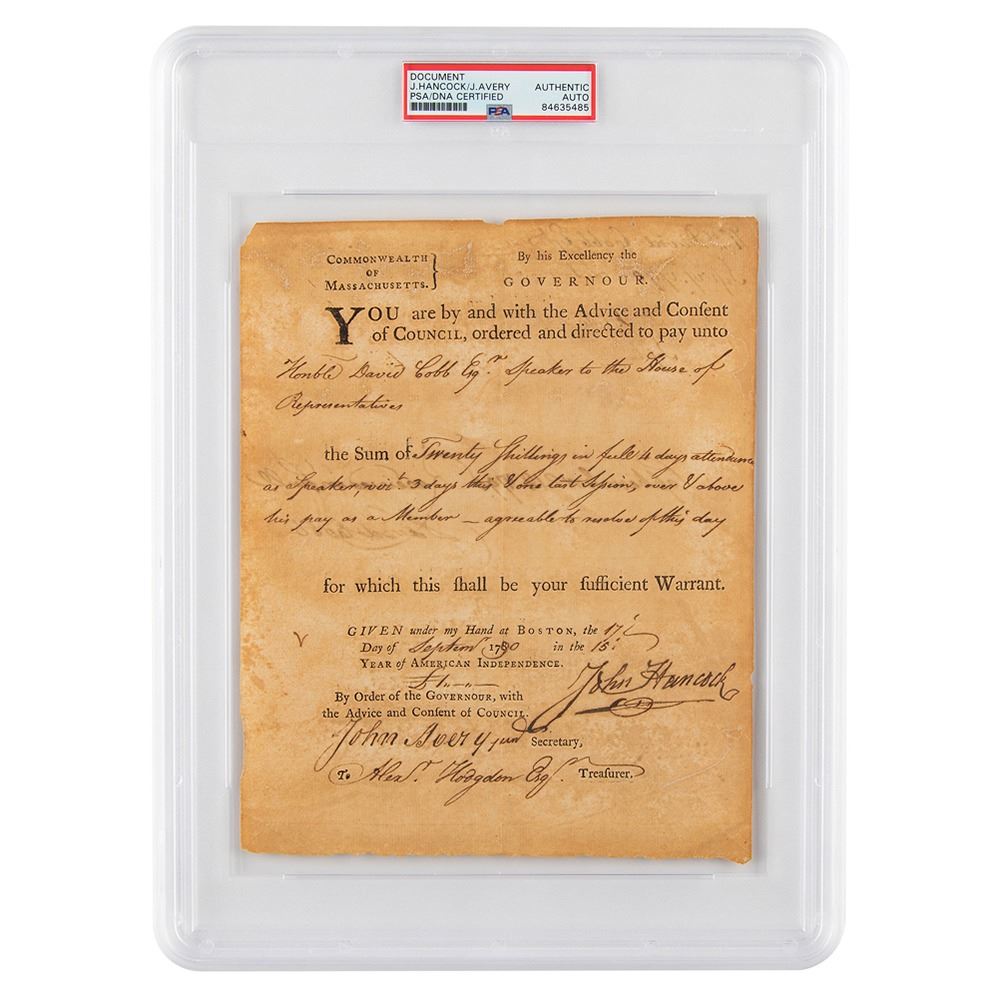 DOCUMENT
J.HANCOCK/J.AVERY AUTHENTIC
PSA/DNA CERTIFIED AUTO
PSA 84635485
COMMONWEALTH
OF
MASSACHUSETTS. }
By his Excellency the
GOVERNOUR.
YOU are by and with the Advice and Conſent
of COUNCIL, ordered and directed to pay unto
Honble David Cobb Esqr. Speaker to the House of
Representatives
the Sum of Twenty Shillings in full 4 days attendance
as Speaker, vizt. 3 days this & one last Session, over & above
his pay as a Member — agreeable to resolve of this day
for which this ſhall be your ſufficient Warrant.
GIVEN under my Hand at BOSTON, the 17
Day of Septemr 1790 in the 15
YEAR of AMERICAN INDEPENDENCE.
John Hancock
By Order of the GOVERNOUR, with
the Advice and Conſent of COUNCIL.
John Avery junr Secretary,
To Alexr. Hodgdon Esqr. Treaſurer.